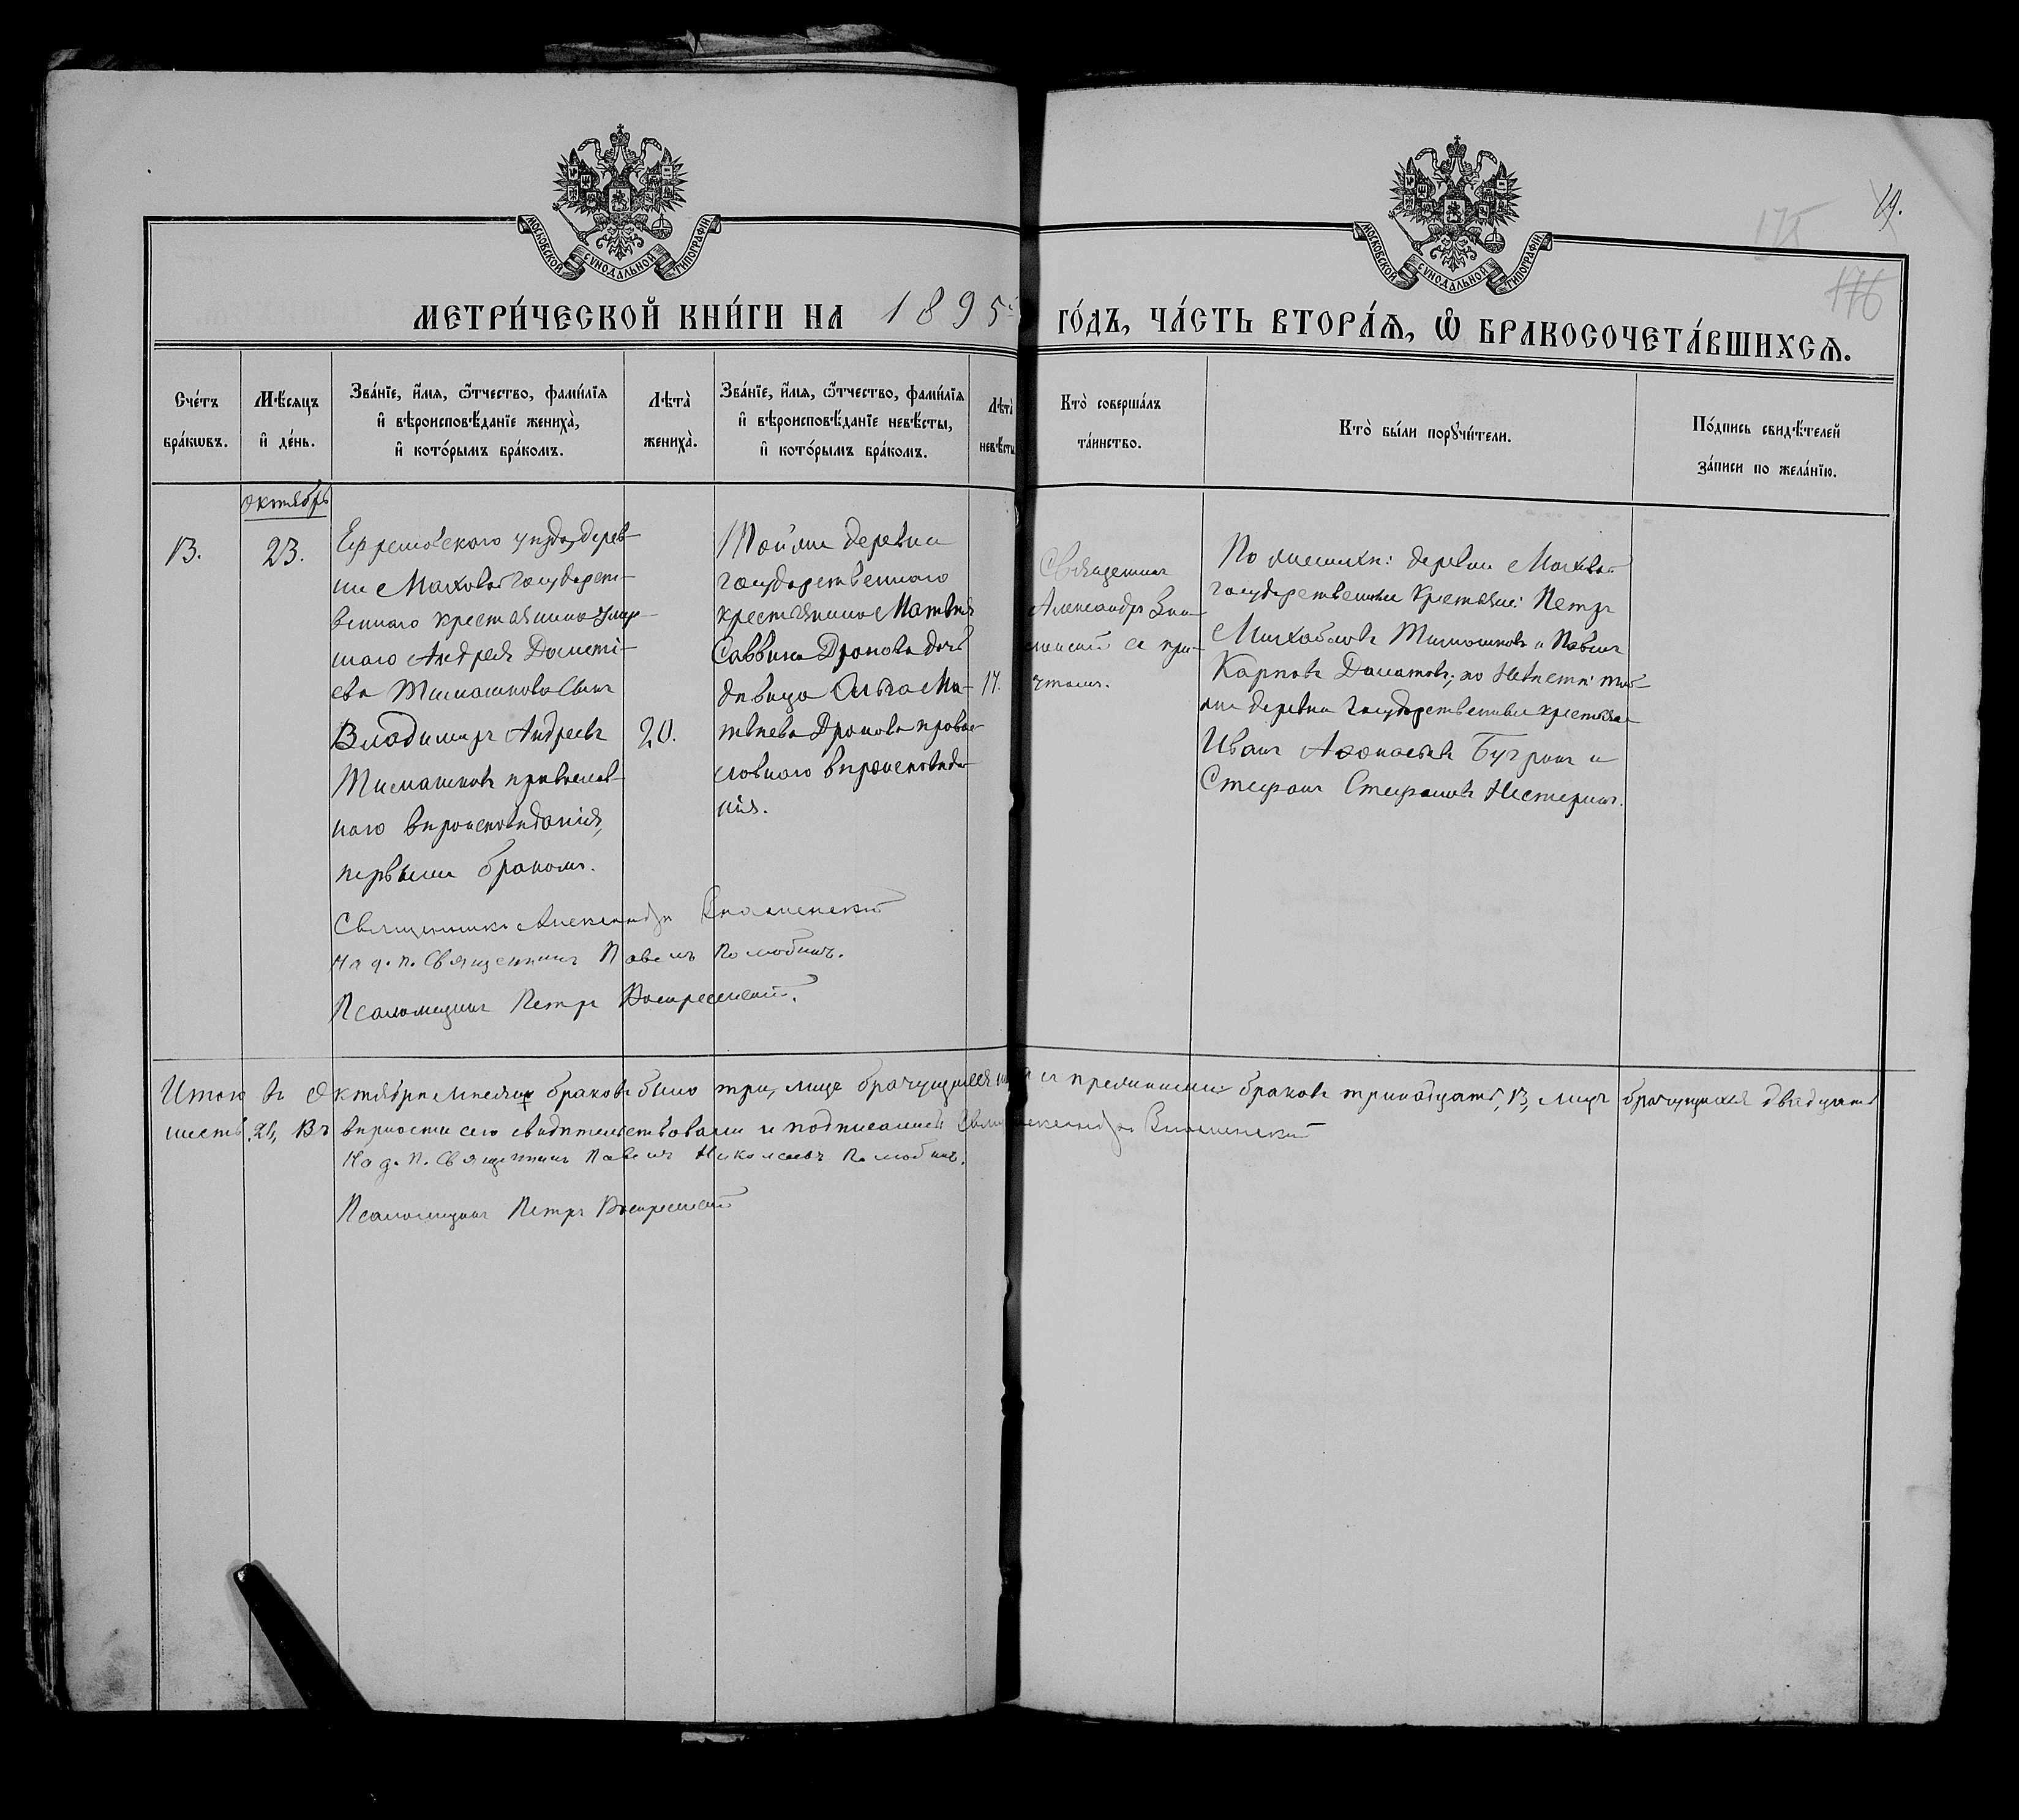 МОСКОВСКОЙ СѴНОДАЛЬНОЙ ТИПОГРАФІИ.
МОСКОВСКОЙ СѴНОДАЛЬНОЙ ТИПОГРАФІИ.
19.
175
176
МЕТРИ́ЧЕСКОЙ КНИ́ГИ НА 1895
ГО́ДЪ, ЧА́СТЬ ВТОРА́Ѧ, Ѽ БРАКОСОЧЕТА́ВШИХСѦ.
Сче́тъ
бра́кѡвъ.
Мѣ́сяцъ
и҆ де́нь.
Зва́нїе, и҆́мя, ѻ҆́тчество, фами́лїя
и҆ вѣроисповѣ́данїе жениха̀,
и҆ кото́рымъ бра́комъ.
Лѣта̀
жениха̀.
Зва́нїе, и҆́мя, ѻ҆́тчество, фами́лїя
и҆ вѣроисповѣ́данїе невѣ́сты,
и҆ кото́рымъ бра́комъ.
Лѣта̀
невѣ́сты
Кто̀ соверша́лъ
та́инство.
Кто̀ бы́ли порꙋчи́тели.
По́дпись свидѣ́телей
за́писи по жела́нїю.
Октябрь
13.
23.
Ефремовскаго уѣзда, дерев-
ни Маховой государст-
веннаго крестьянина умер-
шаго Андрея Домети-
ева Тимашкова сынъ
Владимиръ Андреевъ
Тимашковъ православ-
наго вѣроисповѣданія,
первымъ бракомъ.
20.
Той же деревни
государственнаго
крестьянина Матвѣя
Саввина Дронова дочь
дѣвица Ольга Ма-
твѣева Дронова право-
славнаго вѣроисповѣда-
нія.
17.
Священникъ
Александръ Зна-
менскій съ при-
чтомъ.
По женихѣ: деревни Маховой
государственные крестьяне: Петръ
Михайловъ Тимашковъ и Павелъ
Карповъ Даматовъ; по невѣстѣ: той
же деревни государственные крестьяне
Иванъ Аѳонасьевъ Бугринъ и
Стефанъ Стефановъ Нестеринъ.
Священникъ Александръ Знаменскій
На д. п. Священникъ Павелъ Полюбинъ.
Псаломщикъ Петръ Воскресенскій.
Итого въ Октябрѣ мѣсяцѣ браковъ было три, лицъ брачущихся а съ прежними: браковъ тринадцать, 13, лицъ брачущихся двадцать
шесть, 26, Въ вѣрности сего свидѣтельствовали и подписались Знаменскій
На д. п. Священникъ Павелъ Николаевъ Полюбинъ.
Псаломщикъ Петръ Воскресенскій